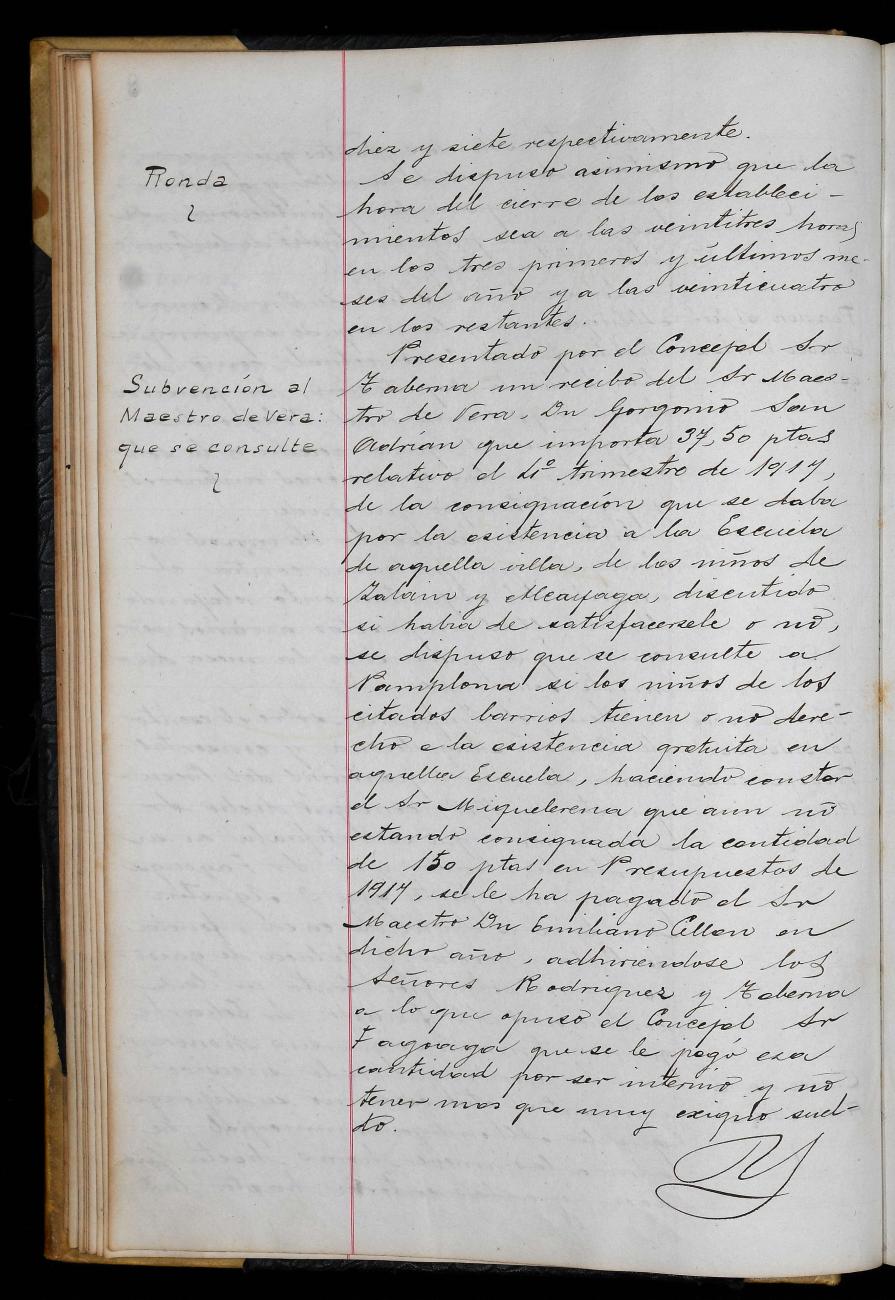 diez y siete respectivamente.
Ronda
Se dispuso asimismo que la
hora del cierre de los estableci-
mientos sea a las veintitres horas
en los tres primeros y últimos me-
ses del año y a las veinticuatro
en los restantes.
Subvención al
Maestro de Vera:
que se consulte
Presentado por el Concejal Sr
Taberna un recibo del Sr Maes-
tro de Vera, Dn Gorgonio San
Adrián que importa 37,50 ptas
relativo al 4º trimestre de 1917,
de la consignación que se daba
por la asistencia a la Escuela
de aquella villa, de los niños de
Zalain y Alcayaga, discutido
si habia de satisfacersele o no,
se dispuso que se consulte a
Pamplona si los niños de los
citados barrios tienen o no dere-
cho a la asistencia gratuita en
aquella Escuela, haciendo constar
el Sr Miquelerena que aun no
estando consignada la cantidad
de 150 ptas en Presupuestos de
1917, se le ha pagado al Sr
Maestro Dn Emiliano en
dicho año, adhiriendose los
Señores Rodriguez y Taberna
a lo que opuso el Concejal Sr
Fagoaga que se le pagó esa
cantidad por ser interino y no
tener mas que muy exiguo suel-
do.